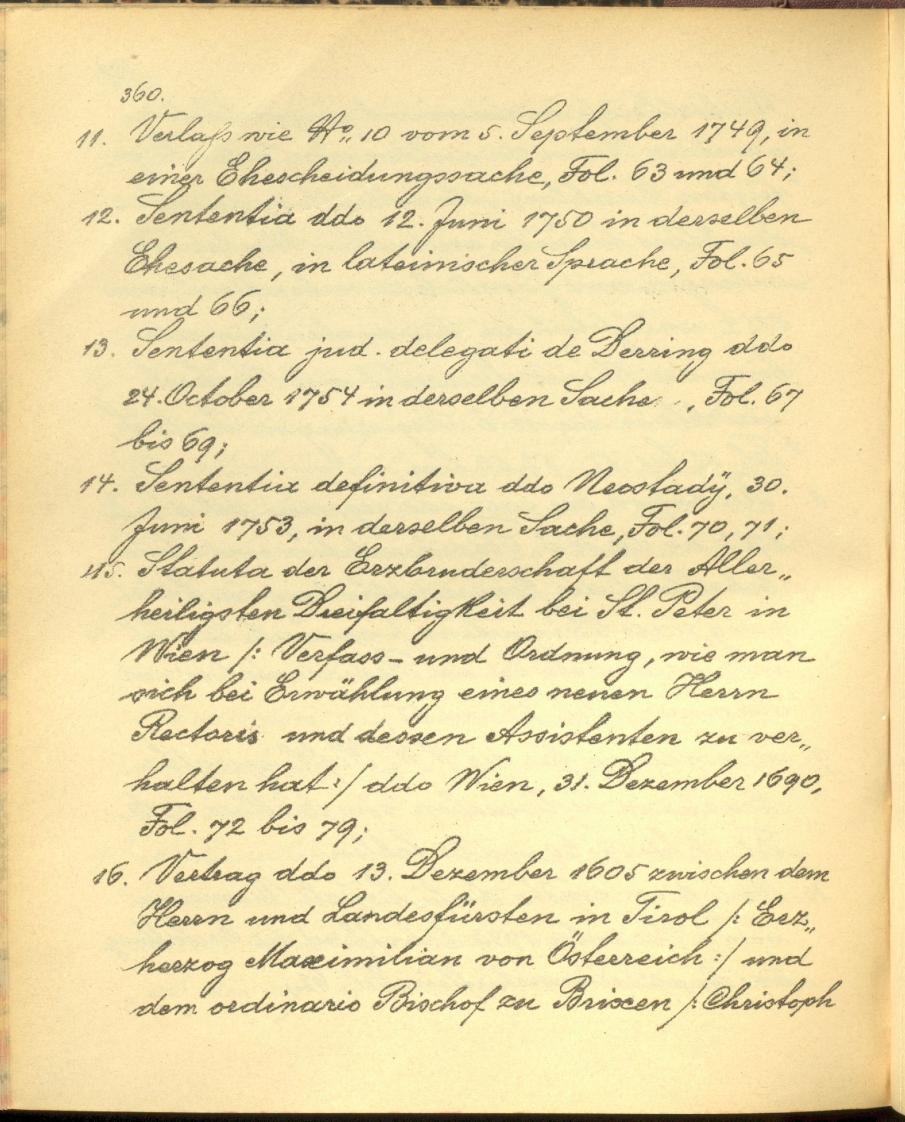 360.
11. Verlaß wie No. 10 vom 5. September 1749, in
einer Ehescheidungssache, Fol. 63 und 64;
12. Sententia ddo 12. Juni 1750 in derselben
Ehesache, in lateinischer Sprache, Fol. 65
und 66;
13. Sententia jud. delegati de Derring ddo
24. October 1754 in derselben Sache, Fol. 67
bis 69;
14. Sententia definitiva ddo Neostadÿ, 30.
Juni 1753, in derselben Sache, Fol. 70, 71;
15. Statuta der Erzbruderschaft der Aller„
heiligsten Dreifaltigkeit bei St. Peter in
Wien /: Verfass- und Ordnung, wie man
sich bei Erwählung eines neuen Herrn
Rectoris und dessen Assistenten zu ver„
halten hat :/ ddo Wien, 31. Dezember 1690,
Fol. 72 bis 79;
16. Vertrag ddo 13. Dezember 1605 zwischen dem
Herrn und Landesfürsten in Tirol /: Erz„
herzog Maximilian von Österreich :/ und
dem ordinario Bischof zu Brixen /: Christoph